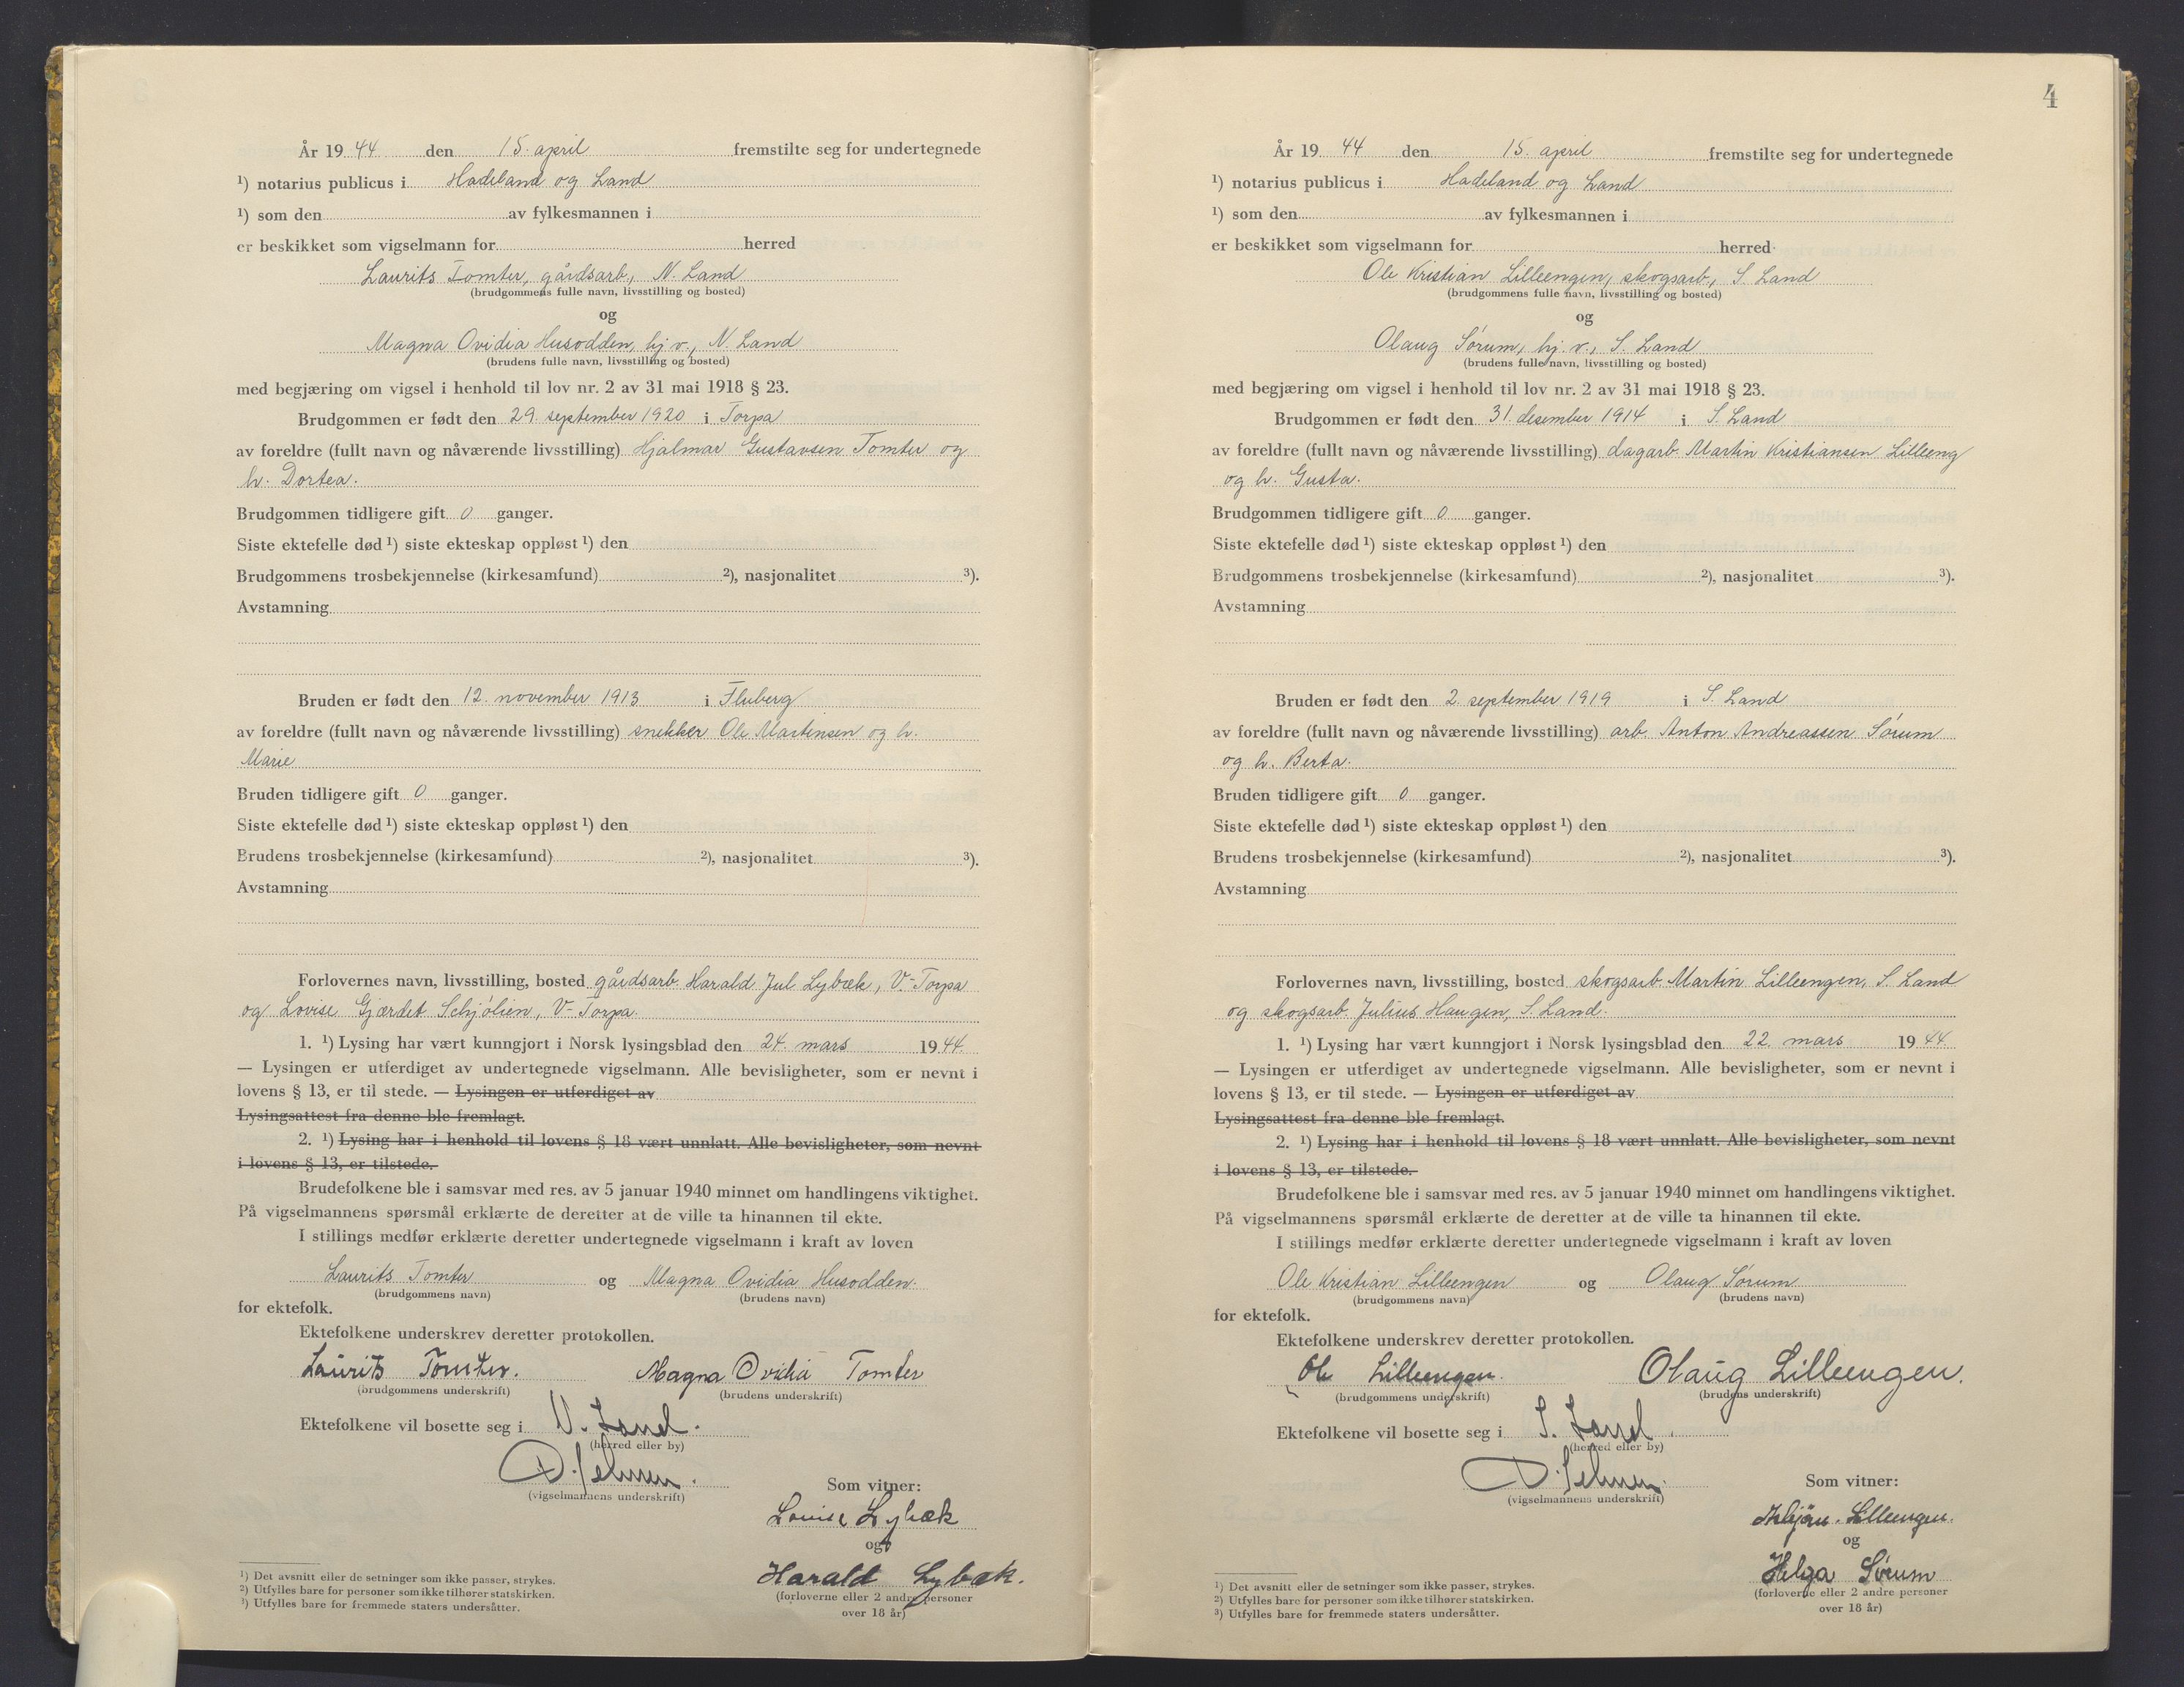 År 19 44 den 15. april fremstilte seg for undertegnede
¹) notarius publicus i Hadeland og Land
¹) som den av fylkesmannen i
er beskikket som vigselmann for herred
Laurits Tomter, gårdsarb., N. Land
(brudgommens fulle navn, livsstilling og bosted)
og
Magna Ovidia Husodden, hj.v., N. Land
(brudens fulle navn, livsstilling og bosted)
med begjæring om vigsel i henhold til lov nr. 2 av 31 mai 1918 § 23.
Brudgommen er født den 29. september 1920 i Torpa
av foreldre (fullt navn og nåværende livsstilling) Hjalmar Gustavsen Tomter og
h. Dortea.
Brudgommen tidligere gift 0 ganger.
Siste ektefelle død ¹) siste ekteskap oppløst ¹) den
Brudgommens trosbekjennelse (kirkesamfund) ²), nasjonalitet ³).
Avstamning
Bruden er født den 12. november 1913 i Fluberg
av foreldre (fullt navn og nåværende livsstilling) snekker Ole Martinsen og h.
Marie
Bruden tidligere gift 0 ganger.
Siste ektefelle død ¹) siste ekteskap oppløst ¹) den
Brudens trosbekjennelse (kirkesamfund) ²), nasjonalitet ³).
Avstamning
Forlovernes navn, livsstilling, bosted gårdsarb. Harald Jul Lybæk, V.-Torpa
og Lovise Gjærdet Schjölien, V-Torpa.
1. ¹) Lysing har vært kunngjort i Norsk lysingsblad den 24. mars 19 44.
— Lysingen er utferdiget av undertegnede vigselmann. Alle bevisligheter, som er nevnt i
lovens § 13, er til stede. — Lysingen er utferdiget av
Lysingsattest fra denne ble fremlagt.
2. ¹) Lysing har i henhold til lovens § 18 vært unnlatt. Alle bevisligheter, som nevnt
i lovens § 13, er tilstede.
Brudefolkene ble i samsvar med res. av 5 januar 1940 minnet om handlingens viktighet.
På vigselmannens spørsmål erklærte de deretter at de ville ta hinannen til ekte.
I stillings medfør erklærte deretter undertegnede vigselmann i kraft av loven
Laurits Tomter og Magna Ovidia Husodden.
(brudgommens navn) (brudens navn)
for ektefolk.
Ektefolkene underskrev deretter protokollen.
Laurits Tomter. Magna Ovidia Tomter
(brudgommens underskrift) (brudens underskrift)
Ektefolkene vil bosette seg i N. Land.
(herred eller by)
(vigselmannens underskrift)
Som vitner:
Lovise Lybæk
og
Harald Lybæk.
(forloverne eller 2 andre personer
over 18 år)
¹) Det avsnitt eller de setninger som ikke passer, strykes.
²) Utfylles bare for personer som ikke tilhører statskirken.
³) Utfylles bare for fremmede staters undersåtter.
4
År 19 44 den 15. april fremstilte seg for undertegnede
¹) notarius publicus i Hadeland og Land
¹) som den av fylkesmannen i
er beskikket som vigselmann for herred
Ole Kristian Lilleengen, skogsarb., S. Land
(brudgommens fulle navn, livsstilling og bosted)
og
Olaug Sørum, hj.v., S. Land
(brudens fulle navn, livsstilling og bosted)
med begjæring om vigsel i henhold til lov nr. 2 av 31 mai 1918 § 23.
Brudgommen er født den 31. desember 1914 i S. Land
av foreldre (fullt navn og nåværende livsstilling) dagarb. Martin Kristiansen Lilleeng
og h. Gusta.
Brudgommen tidligere gift 0 ganger.
Siste ektefelle død ¹) siste ekteskap oppløst ¹) den
Brudgommens trosbekjennelse (kirkesamfund) ²), nasjonalitet ³).
Avstamning
Bruden er født den 2. september 1919 i S. Land
av foreldre (fullt navn og nåværende livsstilling) arb. Anton Andreassen Sørum
og h. Berta.
Bruden tidligere gift 0 ganger.
Siste ektefelle død ¹) siste ekteskap oppløst ¹) den
Brudens trosbekjennelse (kirkesamfund) ²), nasjonalitet ³).
Avstamning
Forlovernes navn, livsstilling, bosted skogsarb. Martin Lilleengen, S. Land
og skogsarb. Julius Haugen, S. Land.
1. ¹) Lysing har vært kunngjort i Norsk lysingsblad den 22. mars 19 44
— Lysingen er utferdiget av undertegnede vigselmann. Alle bevisligheter, som er nevnt i
lovens § 13, er til stede. — Lysingen er utferdiget av
Lysingsattest fra denne ble fremlagt.
2. ¹) Lysing har i henhold til lovens § 18 vært unnlatt. Alle bevisligheter, som nevnt
i lovens § 13, er tilstede.
Brudefolkene ble i samsvar med res. av 5 januar 1940 minnet om handlingens viktighet.
På vigselmannens spørsmål erklærte de deretter at de ville ta hinannen til ekte.
I stillings medfør erklærte deretter undertegnede vigselmann i kraft av loven
Ole Kristian Lilleengen og Olaug Sørum
(brudgommens navn) (brudens navn)
for ektefolk.
Ektefolkene underskrev deretter protokollen.
Ole Lilleengen. Olaug Lilleengen.
(brudgommens underskrift) (brudens underskrift)
Ektefolkene vil bosette seg i S. Land.
(herred eller by)
(vigselmannens underskrift)
Som vitner:
Lilleengen.
og
Helga Sørum
(forloverne eller 2 andre personer
over 18 år)
¹) Det avsnitt eller de setninger som ikke passer, strykes.
²) Utfylles bare for personer som ikke tilhører statskirken.
³) Utfylles bare for fremmede staters undersåtter.